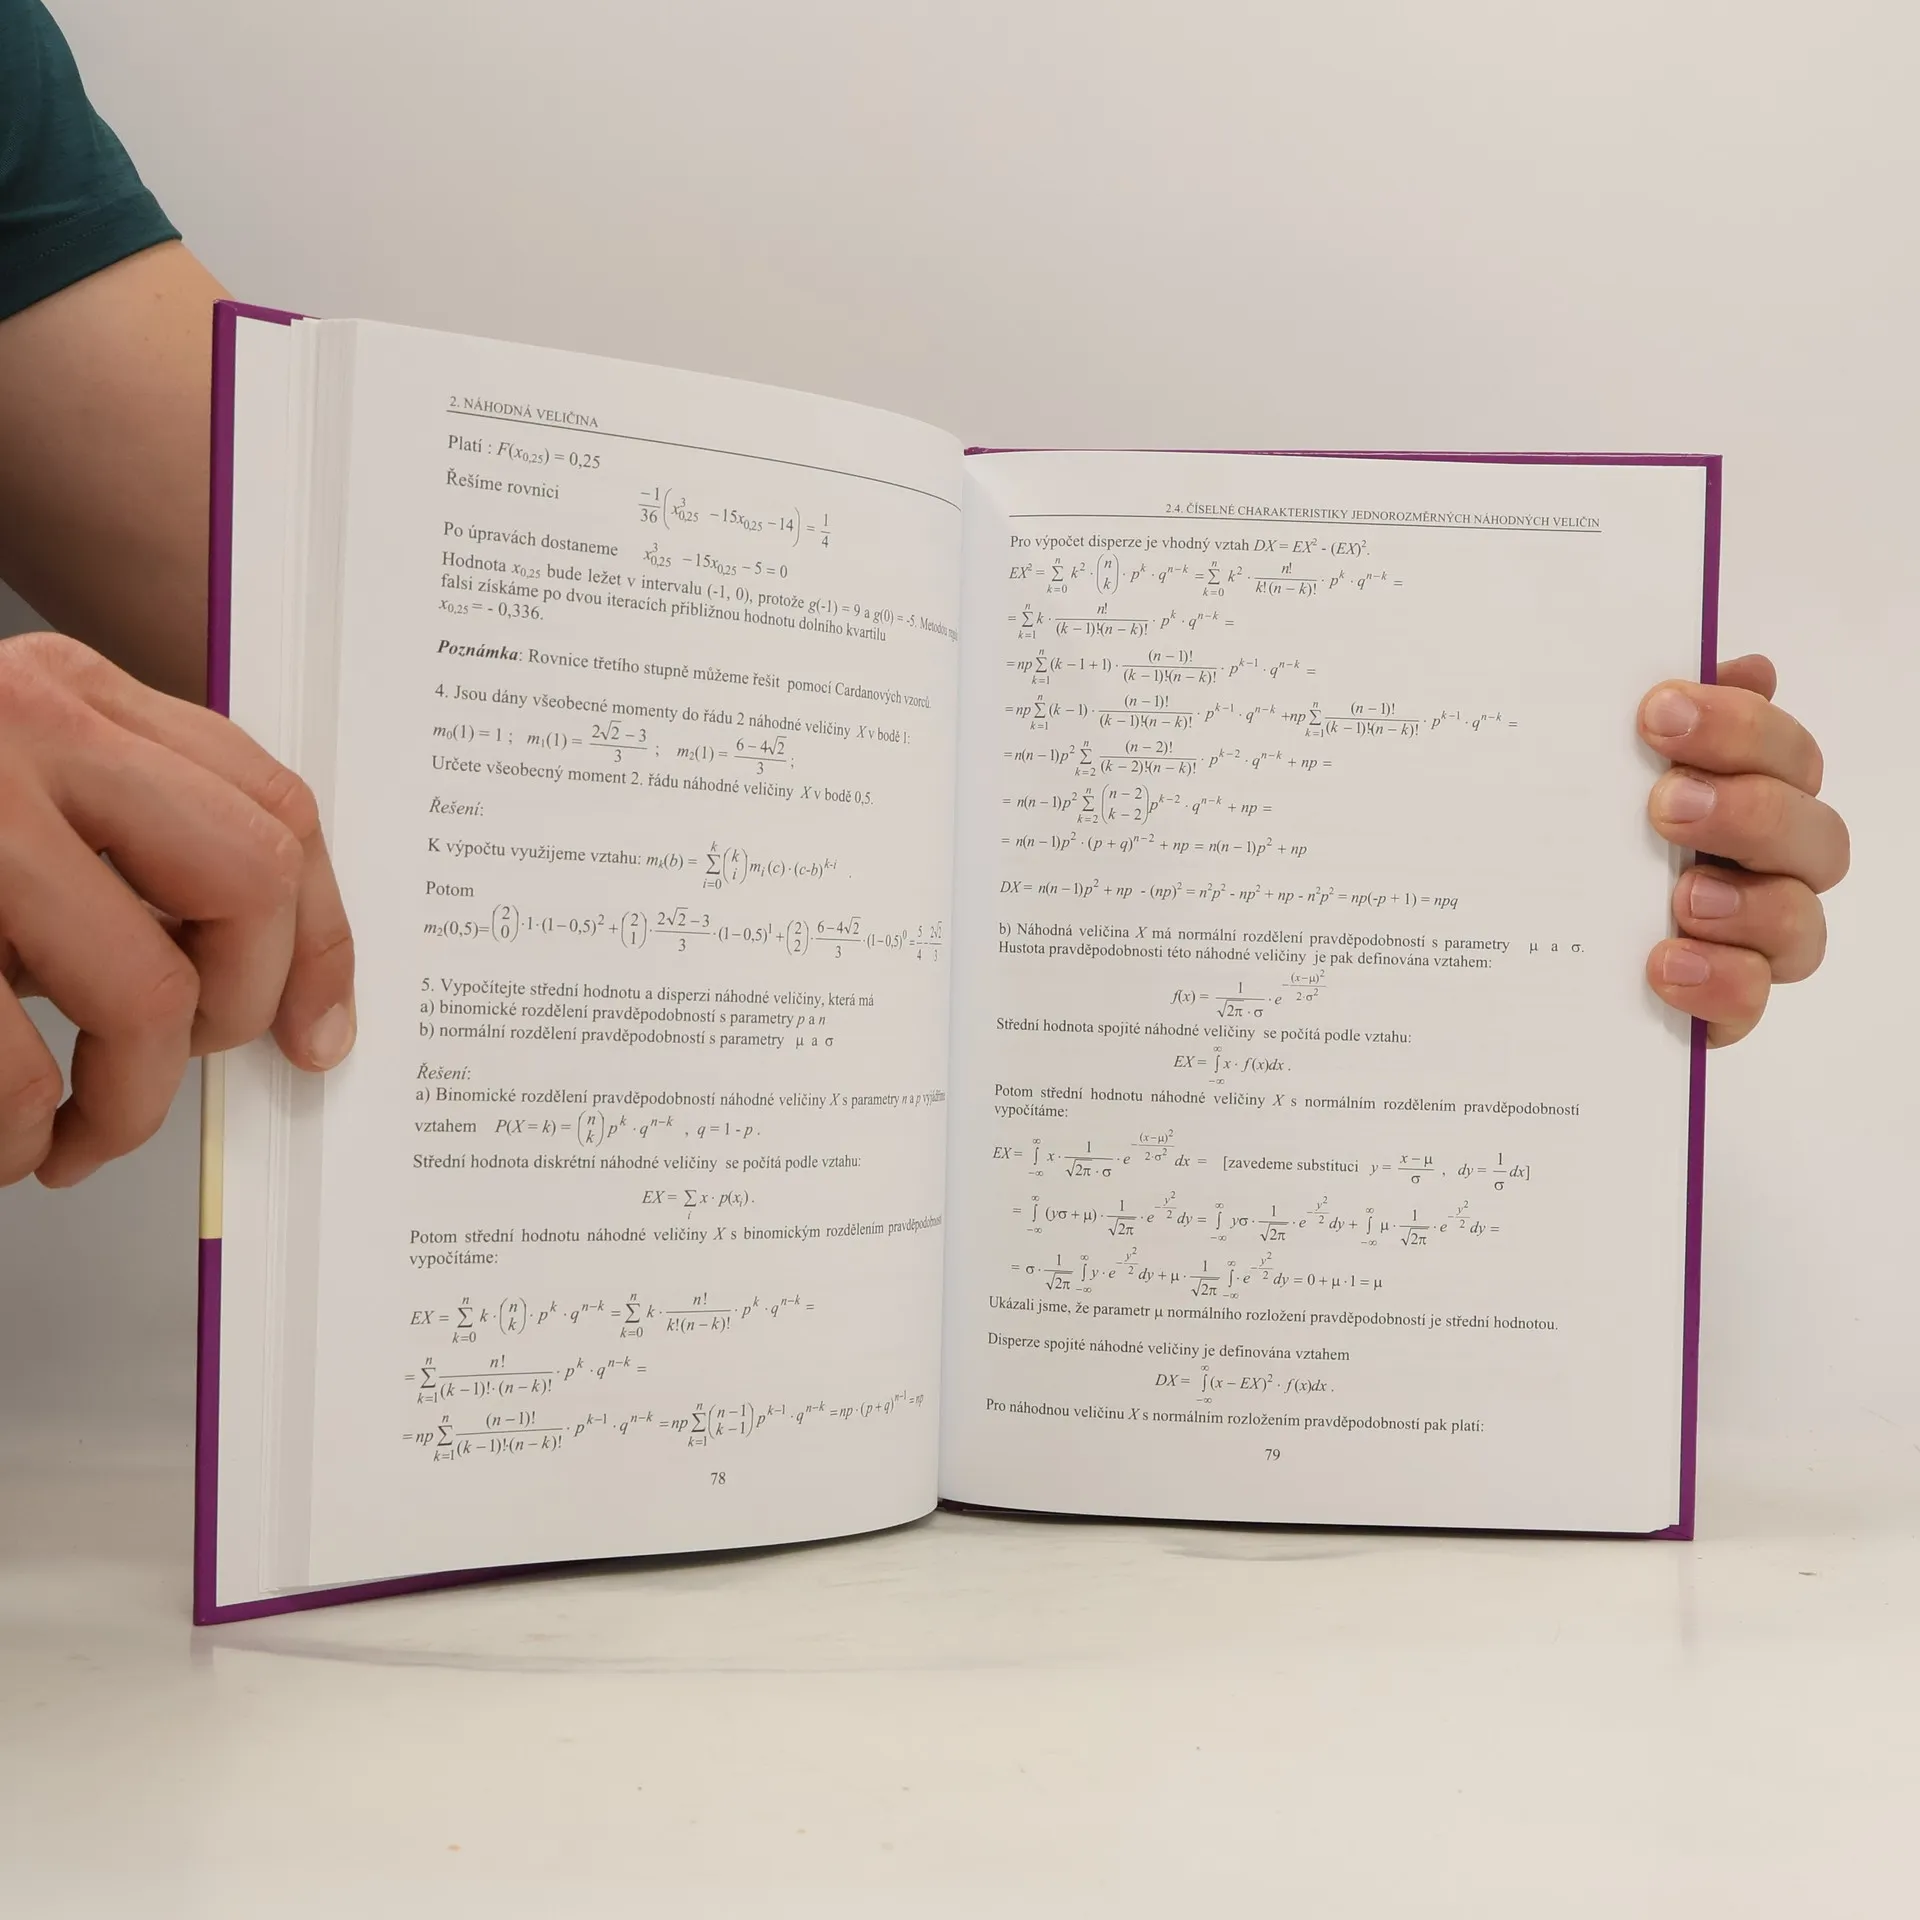 2. NÁHODNÁ VELIČINA
Platí : F(x0,25) = 0,25
Řešíme rovnici −1/36 (x³0,25 − 15x0,25 − 14) = 1/4
Po úpravách dostaneme x³0,25 − 15x0,25 − 5 = 0
Hodnota x0,25 bude ležet v intervalu (-1, 0), protože g(-1) = 9 a g(0) = -5. Metodou
falsi získáme po dvou iteracích přibližnou hodnotu dolního kvartilu
x0,25 = - 0,336.
Poznámka: Rovnice třetího stupně můžeme řešit pomocí Cardanových vzorců.
4. Jsou dány všeobecné momenty do řádu 2 náhodné veličiny X v bodě 1:
m0(1) = 1 ; m1(1) = (2√2 − 3)/3 ; m2(1) = (6 − 4√2)/3 ;
Určete všeobecný moment 2. řádu náhodné veličiny X v bodě 0,5.
Řešení:
K výpočtu využijeme vztahu: mk(b) = ∑_{i=0}^{k} (k i) mi(c)·(c-b)^{k-i} .
Potom
m2(0,5)= (2 0)·1·(1−0,5)² + (2 1)·(2√2−3)/3·(1−0,5)¹ + (2 2)·(6−4√2)/3·(1−0,5)⁰ = 5/4 − 2√2/3
5. Vypočítejte střední hodnotu a disperzi náhodné veličiny, která má
a) binomické rozdělení pravděpodobností s parametry p a n
b) normální rozdělení pravděpodobností s parametry μ a σ
Řešení:
a) Binomické rozdělení pravděpodobností náhodné veličiny X s parametry n a p
vztahem P(X = k) = (n k) p^k · q^{n−k} , q = 1 - p .
Střední hodnota diskrétní náhodné veličiny se počítá podle vztahu:
EX = ∑_i x · p(xi) .
Potom střední hodnotu náhodné veličiny X s binomickým rozdělením
vypočítáme:
EX = ∑_{k=0}^{n} k · (n k) · p^k · q^{n−k} = ∑_{k=0}^{n} k · n!/(k!(n − k)!) · p^k · q^{n−k} =
= ∑_{k=1}^{n} n!/((k − 1)!·(n − k)!) · p^k · q^{n−k} =
= np ∑_{k=1}^{n} (n − 1)!/((k − 1)!·(n − k)!) · p^{k−1} · q^{n−k} = np ∑_{k=1}^{n} (n − 1 k − 1) p^{k−1} · q^{n−k} = np · (p + q)^{n−1} = np
78
2.4. ČÍSELNÉ CHARAKTERISTIKY JEDNOROZMĚRNÝCH NÁHODNÝCH VELIČIN
Pro výpočet disperze je vhodný vztah DX = EX² - (EX)².
EX² = ∑_{k=0}^{n} k² · (n k) · p^k · q^{n−k} = ∑_{k=0}^{n} k² · n!/(k!(n − k)!) · p^k · q^{n−k} =
= ∑_{k=1}^{n} k · n!/((k − 1)!(n − k)!) · p^k · q^{n−k} =
= np ∑_{k=1}^{n} (k − 1 + 1) · (n − 1)!/((k − 1)!(n − k)!) · p^{k−1} · q^{n−k} =
= np ∑_{k=1}^{n} (k − 1) · (n − 1)!/((k − 1)!(n − k)!) · p^{k−1} · q^{n−k} + np ∑_{k=1}^{n} (n − 1)!/((k − 1)!(n − k)!) · p^{k−1} · q^{n−k} =
= n(n − 1)p² ∑_{k=2}^{n} (n − 2)!/((k − 2)!(n − k)!) · p^{k−2} · q^{n−k} + np =
= n(n − 1)p² ∑_{k=2}^{n} (n − 2 k − 2) p^{k−2} · q^{n−k} + np =
= n(n − 1)p² · (p + q)^{n−2} + np = n(n − 1)p² + np
DX = n(n − 1)p² + np - (np)² = n²p² - np² + np - n²p² = np(-p + 1) = npq
b) Náhodná veličina X má normální rozdělení pravděpodobností s parametry μ a σ.
Hustota pravděpodobnosti této náhodné veličiny je pak definována vztahem:
f(x) = 1/(√2π · σ) · e^{−(x−μ)²/(2·σ²)}
Střední hodnota spojité náhodné veličiny se počítá podle vztahu:
EX = ∫_{−∞}^{∞} x · f(x)dx .
Potom střední hodnotu náhodné veličiny X s normálním rozdělením pravděpodobností
vypočítáme:
EX = ∫_{−∞}^{∞} x · 1/(√2π · σ) · e^{−(x−μ)²/(2·σ²)} dx = [zavedeme substituci y = (x − μ)/σ , dy = 1/σ dx]
= ∫_{−∞}^{∞} (yσ + μ) · 1/√2π · e^{−y²/2} dy = ∫_{−∞}^{∞} yσ · 1/√2π · e^{−y²/2} dy + ∫_{−∞}^{∞} μ · 1/√2π · e^{−y²/2} dy =
= σ · 1/√2π ∫_{−∞}^{∞} y · e^{−y²/2} dy + μ · 1/√2π ∫_{−∞}^{∞} · e^{−y²/2} dy = 0 + μ · 1 = μ
Ukázali jsme, že parametr μ normálního rozložení pravděpodobností je střední hodnotou.
Disperze spojité náhodné veličiny je definována vztahem
DX = ∫_{−∞}^{∞} (x − EX)² · f(x)dx .
Pro náhodnou veličinu X s normálním rozložením pravděpodobností pak platí:
79